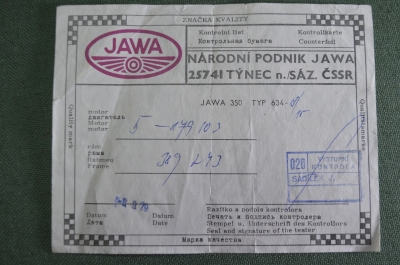 ZNAČKA KVALITY
JAWA
Kontrolní list Kontrollkarte
Контрольная бумага Counterfeil
NÁRODNÍ PODNIK JAWA
25741 TÝNEC n./SÁZ. ČSSR
Quality mark
JAWA 350 TYP 634-
motor
двигатель
Motor
motor
5-179103
rám
рама
Rahmen
Frame
Datum Datum
Дата Date
Razítko a podpis kontrolora
Печать и подпись контролера
Stempel u. Unterschrift des Kontrollors
Seal and signature of the tester
020 VÝSTUPNÍ KONTROLA
Марка качества